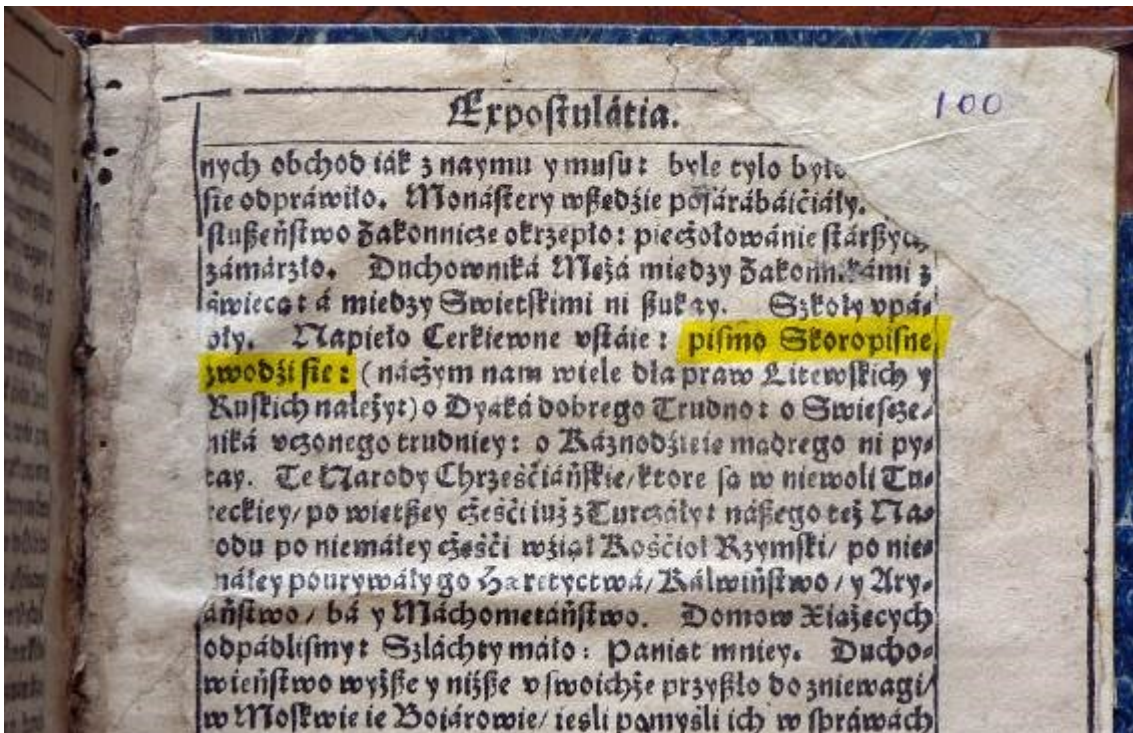 Expostulátia.
100
nych obchod iák z naymu y musu: byle tylo było
sie odpráwiło. Monástery wszędźie pofárábáićiáły.
słuszeństwo Zakonnicze okrzepło: pieczołowánie stárszych
zámárzło. Duchowniká Mężá miedzy Zakonnikámi z
świecą: á miedzy Swietskimi ni szukay. Szkoły vpá-
ły. Napieło Cerkiewne vstáie: pismo Skoropisne
zwodźi sie: (náczym nam wiele dla praw Litewskich y
Ruskich należy:) o Dyaká dobrego Trudno: o Swiesze-
niká vczonego trudniey: o Káznodźieie mądrego ni py-
tay. Te Narody Chrześćiáńskie/ ktore są w niewoli Tu-
reckiey/ po wietszey cześći iuż z Turczáły: nászego też Na-
rodu po niemáłey cześći wźiął Kośćioł Rzymski/ po nie-
máłey pourywáły go Háretyctwá/ Kálwiństwo/ y Ary-
áństwo/ bá y Máchometáństwo. Domow Xiążecych
odpádlismy: Szláchty máło: Paniąt mniey. Ducho-
wieństwo wyższe y niższe v swoichże przyszło do zniewagi/
w Moskwie ie Boiárowie/ iesli pomyśli ich w spráwách